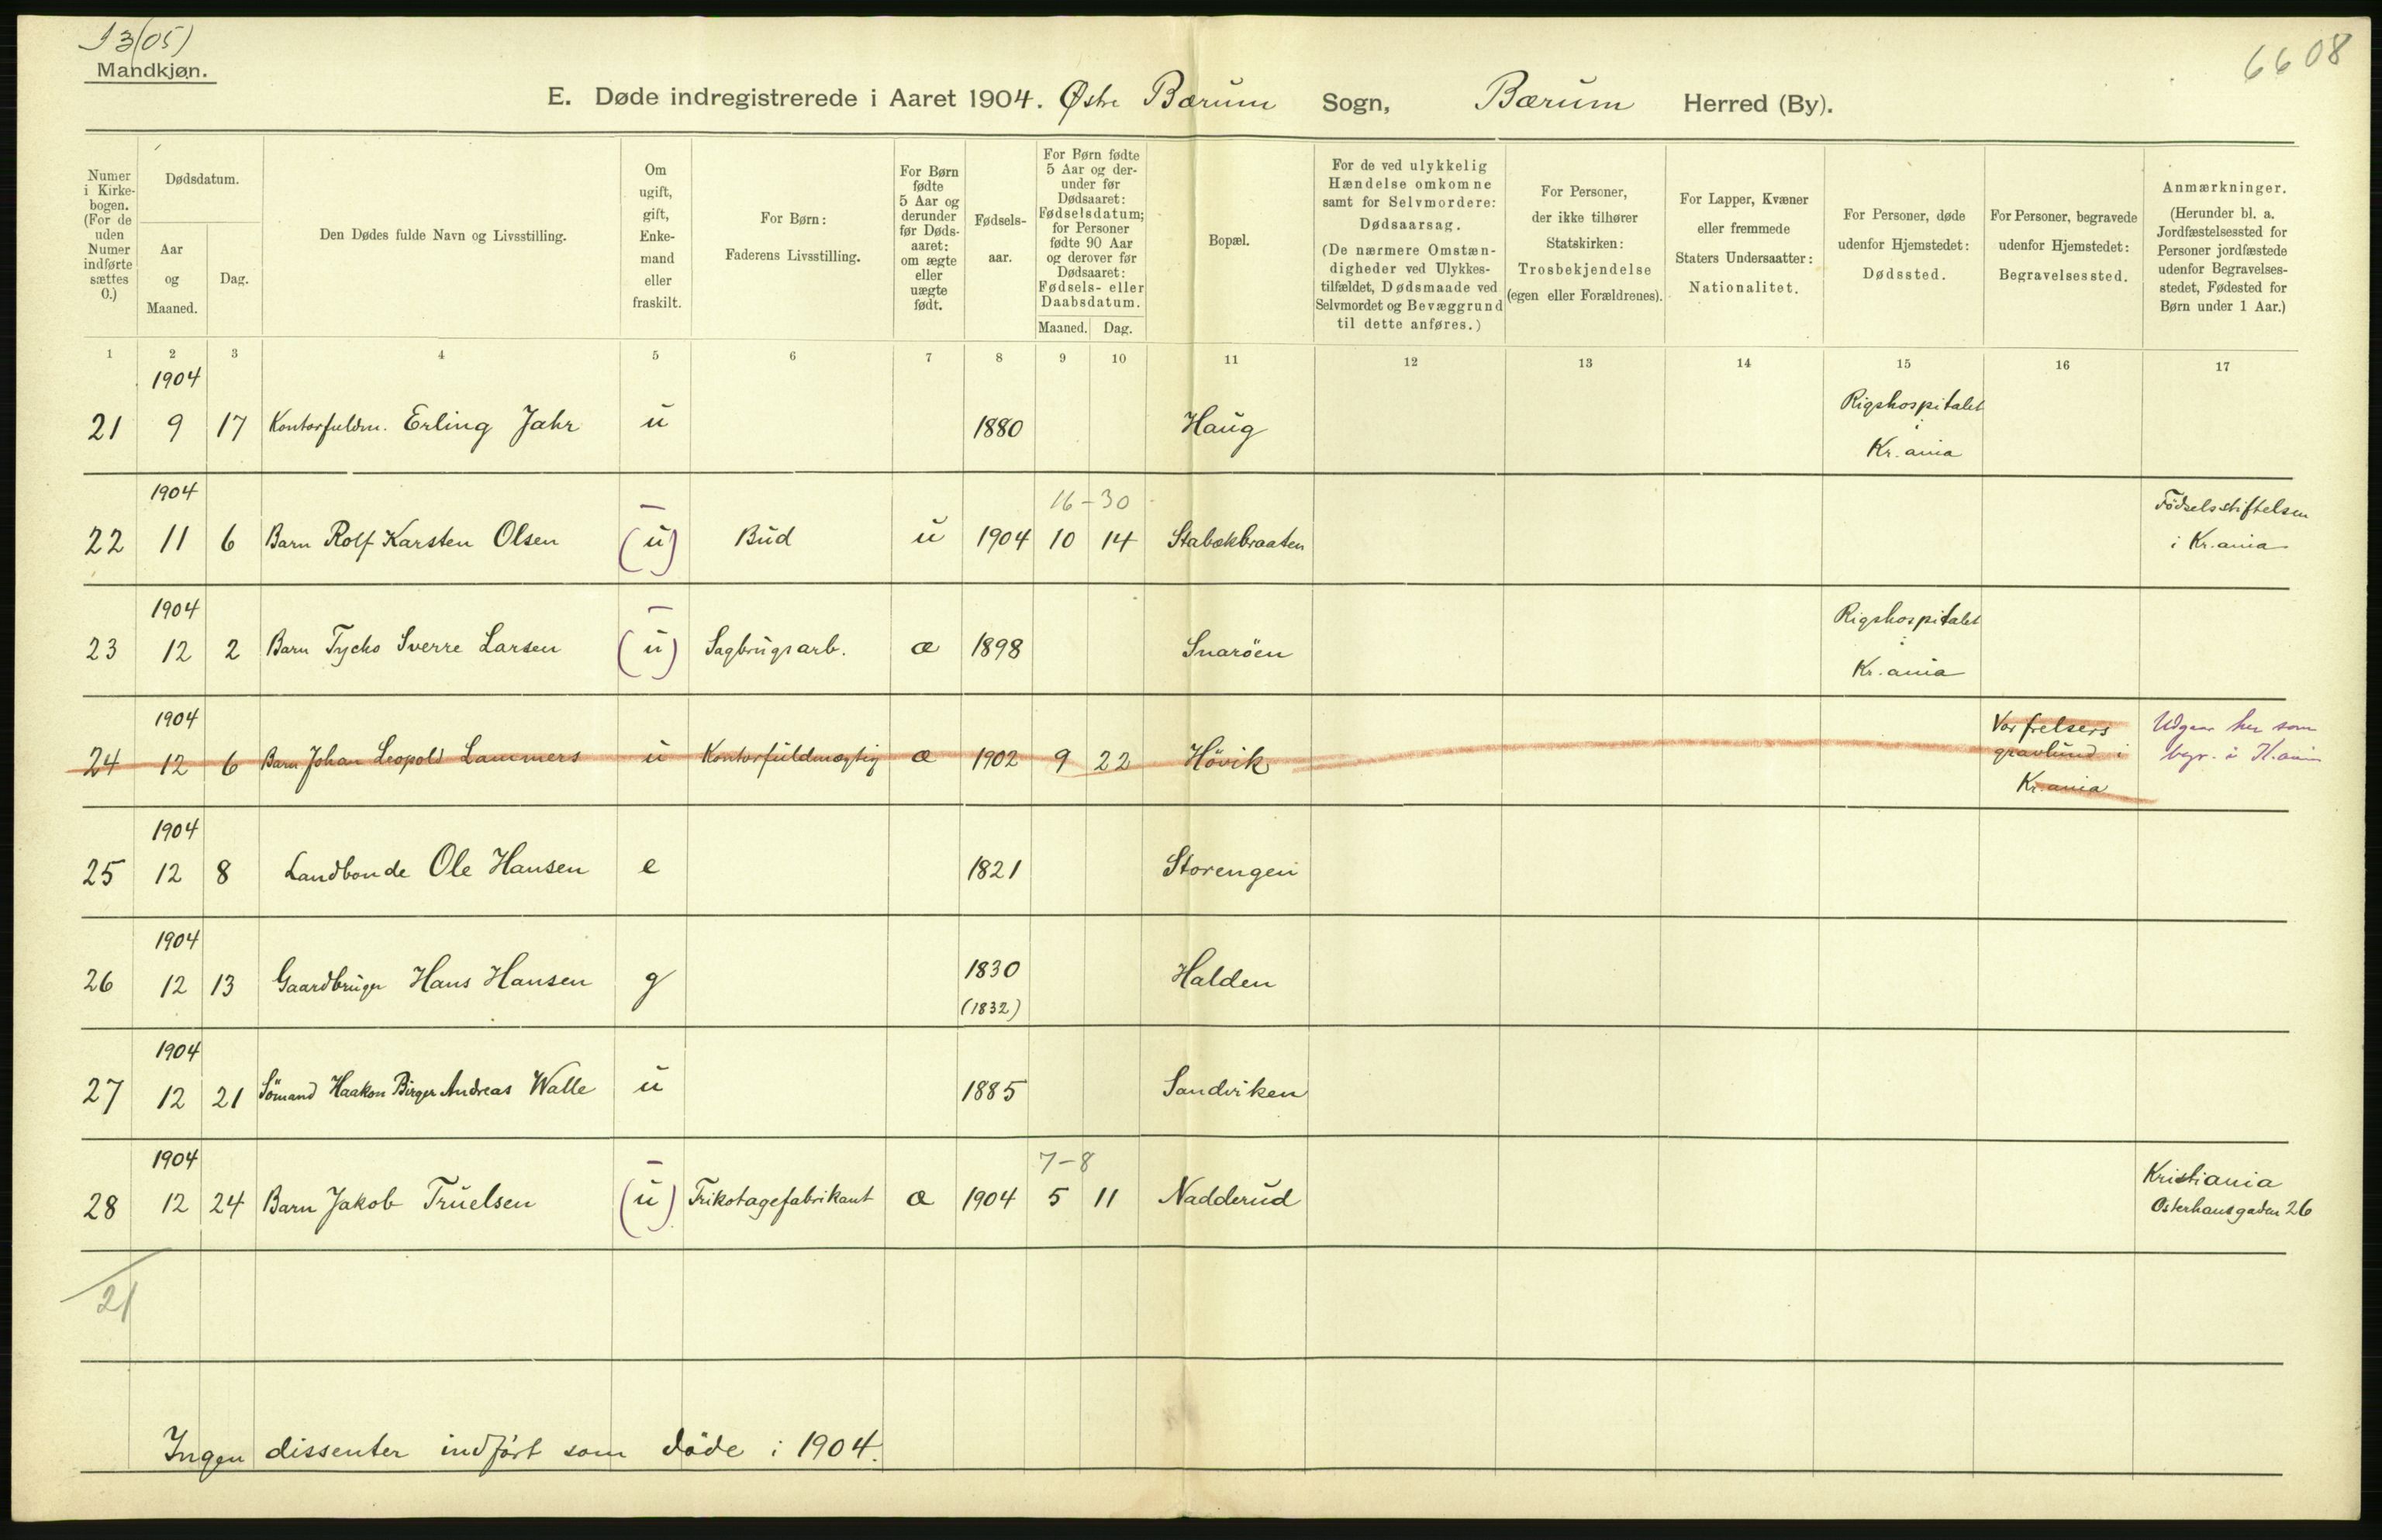 13(05)
6608
Mandkjøn.
E. Døde indregistrerede i Aaret 1904. Østre Bærum Sogn, Bærum Herred (By).
Numer
i Kirke-
bogen.
(For de
uden
Numer
indførte
sættes
0.)
Dødsdatum.
Aar
og
Maaned.
Dag.
Den Dødes fulde Navn og Livsstilling.
Om
ugift,
gift,
Enke-
mand
eller
fraskilt.
For Børn:
Faderens Livsstilling.
For Børn
fødte
5 Aar og
derunder
før Døds-
aaret:
om ægte
eller
uægte
født.
Fødsels-
aar.
For Børn fødte
5 Aar og der-
under før
Dødsaaret:
Fødselsdatum;
for Personer
fødte 90 Aar
og derover før
Dødsaaret:
Fødsels- eller
Daabsdatum.
Maaned. Dag.
Bopæl.
For de ved ulykkelig
Hændelse omkomne
samt for Selvmordere:
Dødsaarsag.
(De nærmere Omstæn-
digheder ved Ulykkes-
tilfældet, Dødsmaade ved
Selvmordet og Bevæggrund
til dette anføres.)
For Personer,
der ikke tilhører
Statskirken:
Trosbekjendelse
(egen eller Forældrenes).
For Lapper, Kvæner
eller fremmede
Staters Undersaatter:
Nationalitet.
For Personer, døde
udenfor Hjemstedet:
Dødssted.
For Personer, begravede
udenfor Hjemstedet:
Begravelsessted.
Anmærkninger.
(Herunder bl. a.
Jordfæstelsessted for
Personer jordfæstede
udenfor Begravelses-
stedet, Fødested for
Børn under 1 Aar.)
1 2 3 4 5 6 7 8 9 10 11 12 13 14 15 16 17
1904
Rigshospitalet
i
21 9 17 Kontorfuldm. Erling Jahr u 1880 Haug
Kr.ania
1904 16-30 Födselsstiftelsen
22 11 6 Barn Rolf Karsten Olsen (u) Bud u 1904 10 14 Stabækbraaten i Kr.ania
1904 Rigshospitalet
i
23 12 2 Barn Tycho Sverre Larsen (u) Sagbrugsarb. æ 1898 Snaröen
Kr.ania
1904 Vor frelsers Udgaar her som
24 12 6 Barn Johan Leopold Lammers u Kontorfuldmægtig æ 1902 9 22 Hövik gravlund i begr. i K.ania
Kr.ania
1904
25 12 8 Landbonde Ole Hansen e 1821 Storengen
1904
26 12 13 Gaardbruger Hans Hansen g 1830 Halden
(1832)
1904
27 12 21 Sömand Haakon Birger Andreas Walle u 1885 Sandviken
1904 7-8 Kristiania
28 12 24 Barn Jakob Truelsen (u) Trikotagefabrikant æ 1904 5 11 Nadderud Osterhausgaden 26
21
Ingen dissenter indfört som döde i 1904.